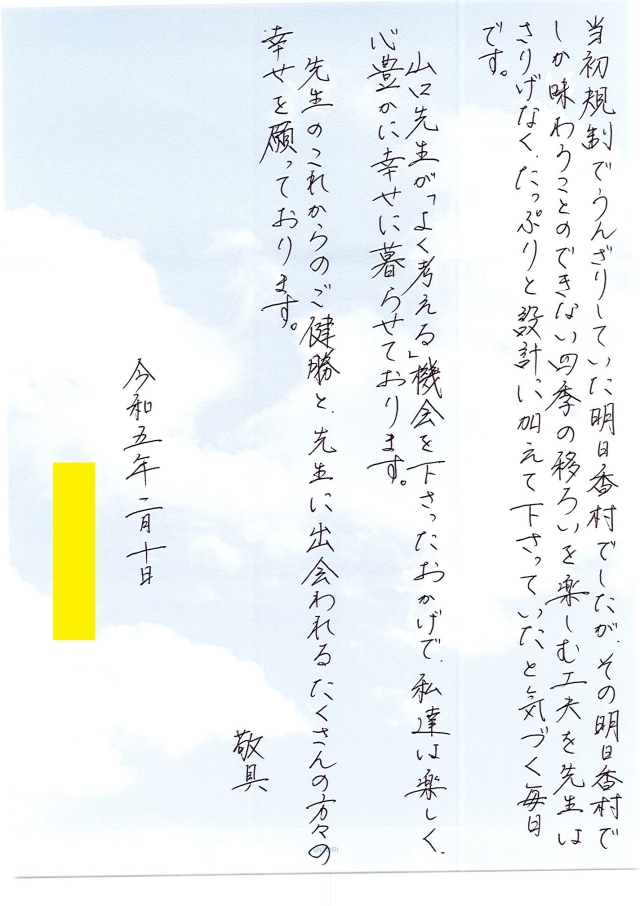 当初規制でうんざりしていた明日香村でしたが、その明日香村で
しか味わうことのできない四季の移ろいを楽しむ工夫を先生は
さりげなく、たっぷりと設計に加えて下さっていたと気づく毎日
です。
山口先生が「よく考える」機会を下さったおかげで、私達は楽しく、
心豊かに幸せに暮らせております。
先生のこれからのご健勝と、先生に出会われるたくさんの方々の
幸せを願っております。
敬具
令和五年二月十日